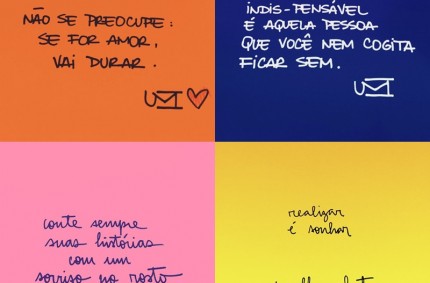 NÃO SE PREOCUPE:
SE FOR AMOR,
VAI DURAR.
UM
INDIS-PENSÁVEL
É AQUELA PESSOA
QUE VOCÊ NEM COGITA
FICAR SEM.
UM
conte sempre
suas histórias
com um
sorriso no rosto
realizar
é sonhar